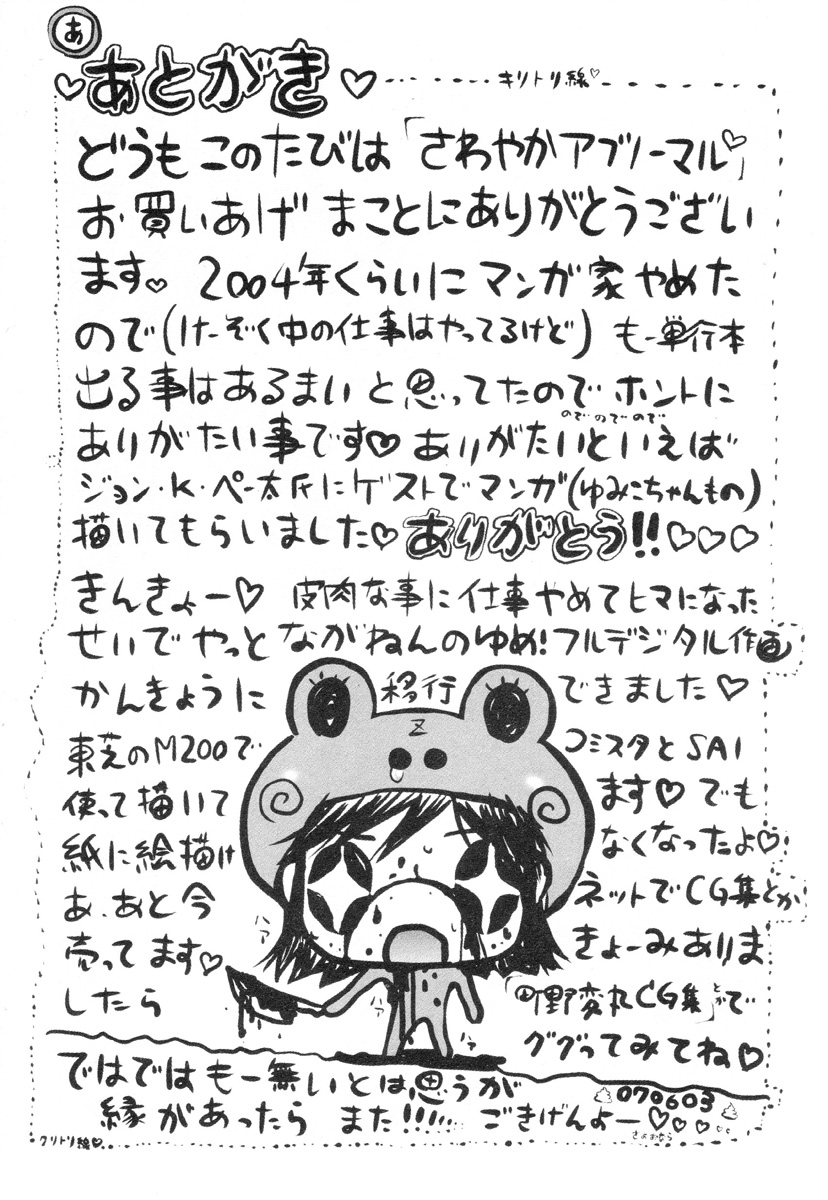 あ
あとがき
キリトリ線♡
どうも このたびは「さわやかアブノーマル♡」
お買いあげ まことにありがとうござい
ます♡ 2004年くらいに マンガ家 やめた
ので(けーぞく中の仕事はやってるけど) もー単行本
出る事はあるまい と思ってたので ホントに
のでのでのでので
ありがたい事です♡ ありがたいといえば
ジョン・K・ペー太氏にゲストでマンガ(ゆみこちゃんもの)
描いてもらいました♡ ありがとう!!♡♡♡
きんきょー♡ 皮肉な事に仕事やめてヒマになった
せいで やっと ながねんのゆめ!フルデジタル作画
かんきょうに 移行 できました♡
Z
東芝のM200で コミスタとSAI
使って描いて ます♡ でも
紙に絵描け なくなったよ♡
あ、あと今 ネットでCG集とか
売ってます♡ きょーみありま
したら 「町野変丸CG集」とかで
ググってみてね♡
ハァ
ハァ
ハァ
ハァ
ではでは もー無いとは思うが
070603
縁があったら また!!!!!! ごきげんよー♡♡♡♡♡
さよおなら
クリトリ線♡